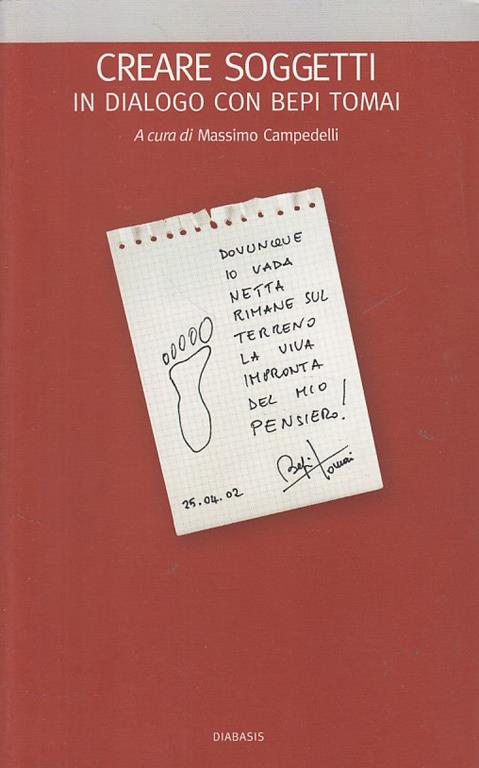 CREARE SOGGETTI
IN DIALOGO CON BEPI TOMAI
A cura di Massimo Campedelli
DOVUNQUE
IO VADA
NETTA
RIMANE SUL
TERRENO
LA VIVA
IMPRONTA
DEL MIO
PENSIERO!
Bepi Tomai
25.04.02
DIABASIS